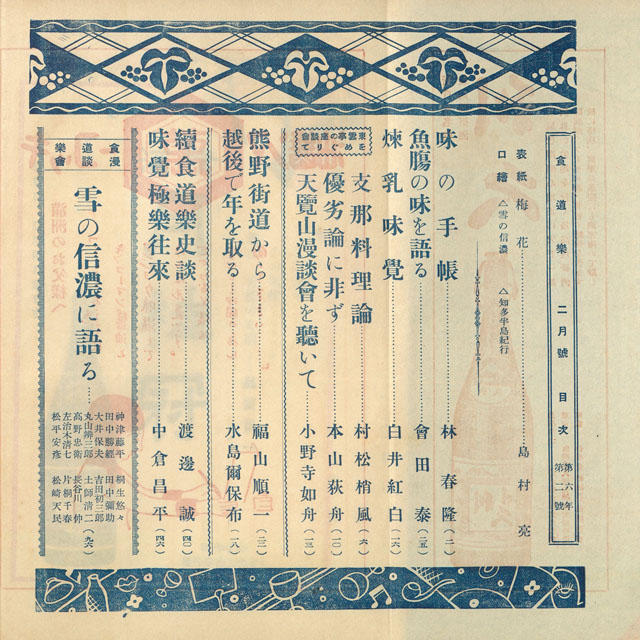 食道樂 二月號 目次 第六年 第二號
表紙 梅花 島村亮
口繪 △雪の信濃 △知多半島紀行
味の手帳 林春隆(二)
魚膓の味を語る 會田泰(二五)
煉乳味覺 白井紅白(一六)
東雲亭の座談會をめぐりて
支那料理論 村松梢風(六)
優劣論に非ず 本山荻舟(一〇)
天覽山漫談會を聽いて 小野寺如舟(一三)
熊野街道から 福山順一(三一)
越後で年を取る 水島爾保布(一八)
續食道樂史談 渡邊誠(四〇)
味覺極樂往來 中倉昌平(四六)
食道樂漫談會
雪の信濃に語る
神津藤平 桐生悠々
田中勝經 田中彌助
大井保夫 吉田初三郎
丸山辨三郎 土師清二
高野忠衛 長谷川伸
左治木清七 片桐千春
松平安彦 松崎天民
(九六)